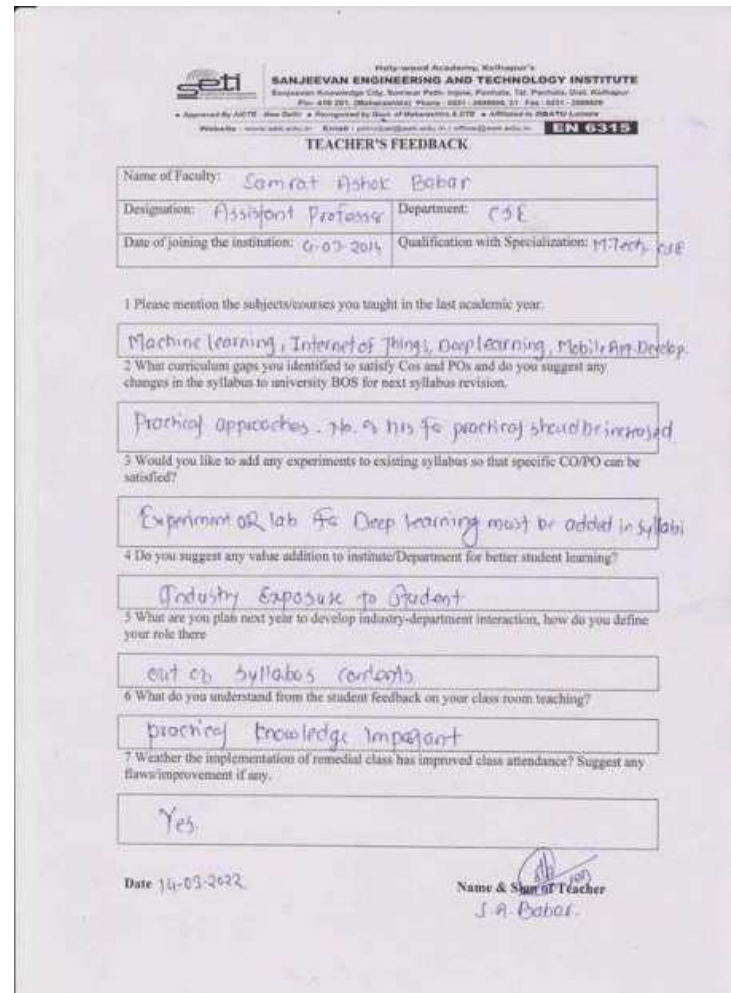 seti
Holy-wood Academy, Kolhapur's
SANJEEVAN ENGINEERING AND TECHNOLOGY INSTITUTE
Sanjeevan Knowledge City, Somwar Peth- Injole, Panhala, Tal. Panhala, Dist. Kolhapur
Pin- 416 201. (Maharashtra) Phone : 0231 -
Approved By AICTE New Delhi Recognized by Govt. of Maharashtra & DTE Affiliated to DBATU Lonere
EN 6315
TEACHER'S FEEDBACK
Name of Faculty: Samrat Ashok Babar
Designation: Assistant Professor Department: CSE
Date of joining the institution: Qualification with Specialization: M.Tech. CSE
1 Please mention the subjects/courses you taught in the last academic year.
Machine learning, Internet of Things, Deep learning, Mobile App. Develop.
2 What curriculum gaps you identified to satisfy Cos and POs and do you suggest any
changes in the syllabus to university BOS for next syllabus revision.
Practical approaches. No. of hrs for practical should be increased
3 Would you like to add any experiments to existing syllabus so that specific CO/PO can be
satisfied?
Experiment OR lab for Deep learning must be added in syllabi
4 Do you suggest any value addition to institute/Department for better student learning?
Industry Exposure to Student
5 What are you plan next year to develop industry-department interaction, how do you define
your role there
out of syllabos contents
6 What do you understand from the student feedback on your class room teaching?
practical knowledge important
7 Weather the implementation of remedial class has improved class attendance? Suggest any
flaws/improvement if any.
Yes.
Date 14-03-2022
Name & Sign of Teacher
S.A. Babar.